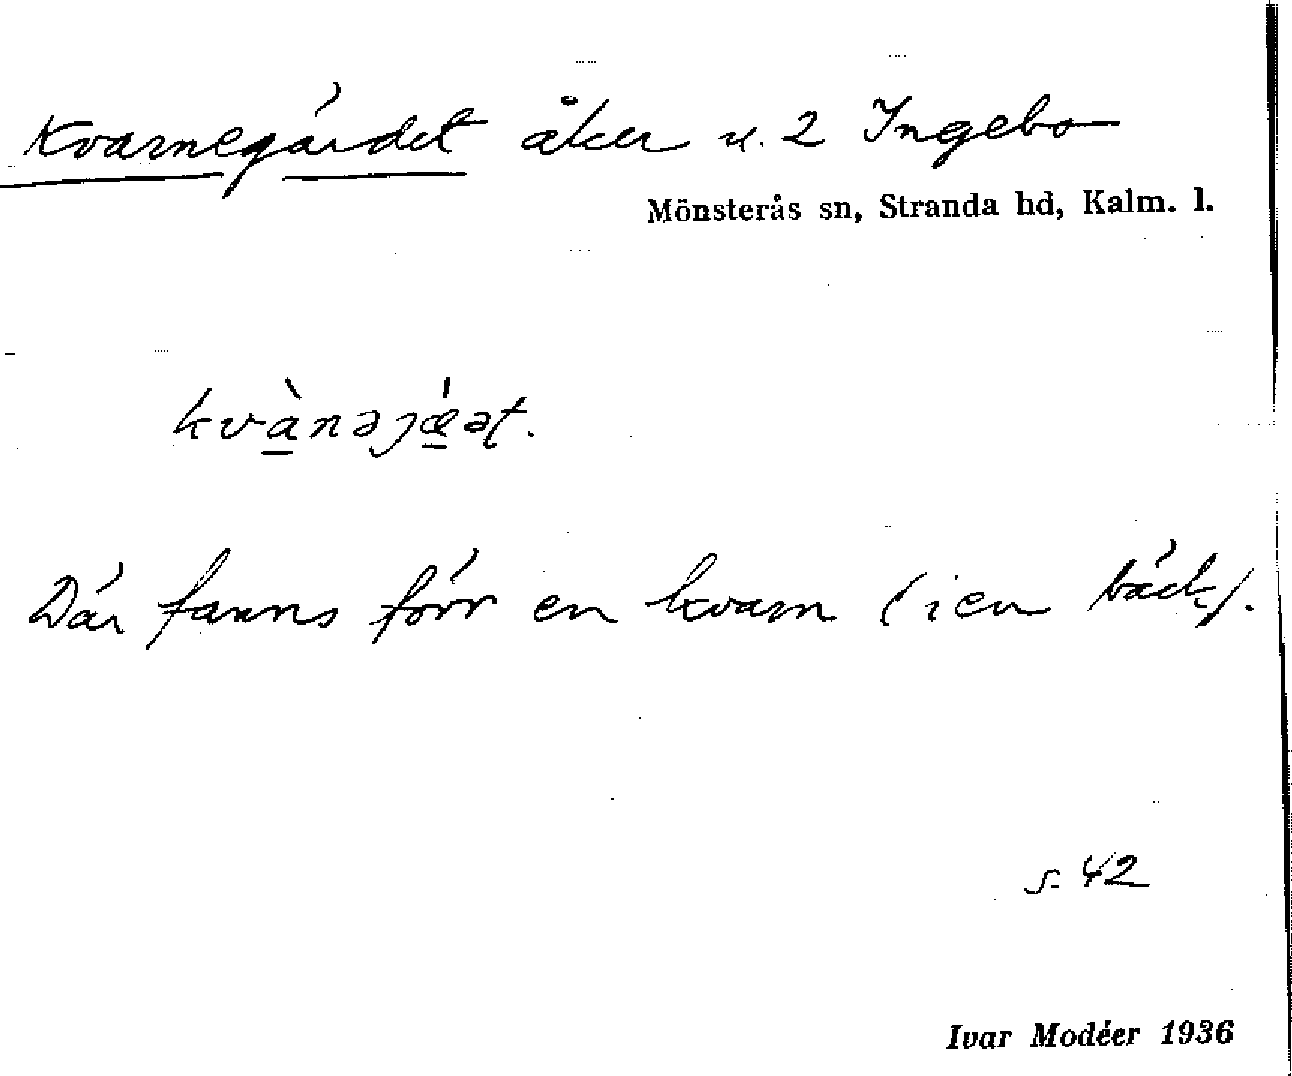 Kvarnegärdet åker u. 2 Ingebo
Mönsterås sn, Stranda hd, Kalm. l.
kvànəjǽət.
Där fanns förr en kvarn (i en bäck).
s. 42
Ivar Modéer 1936